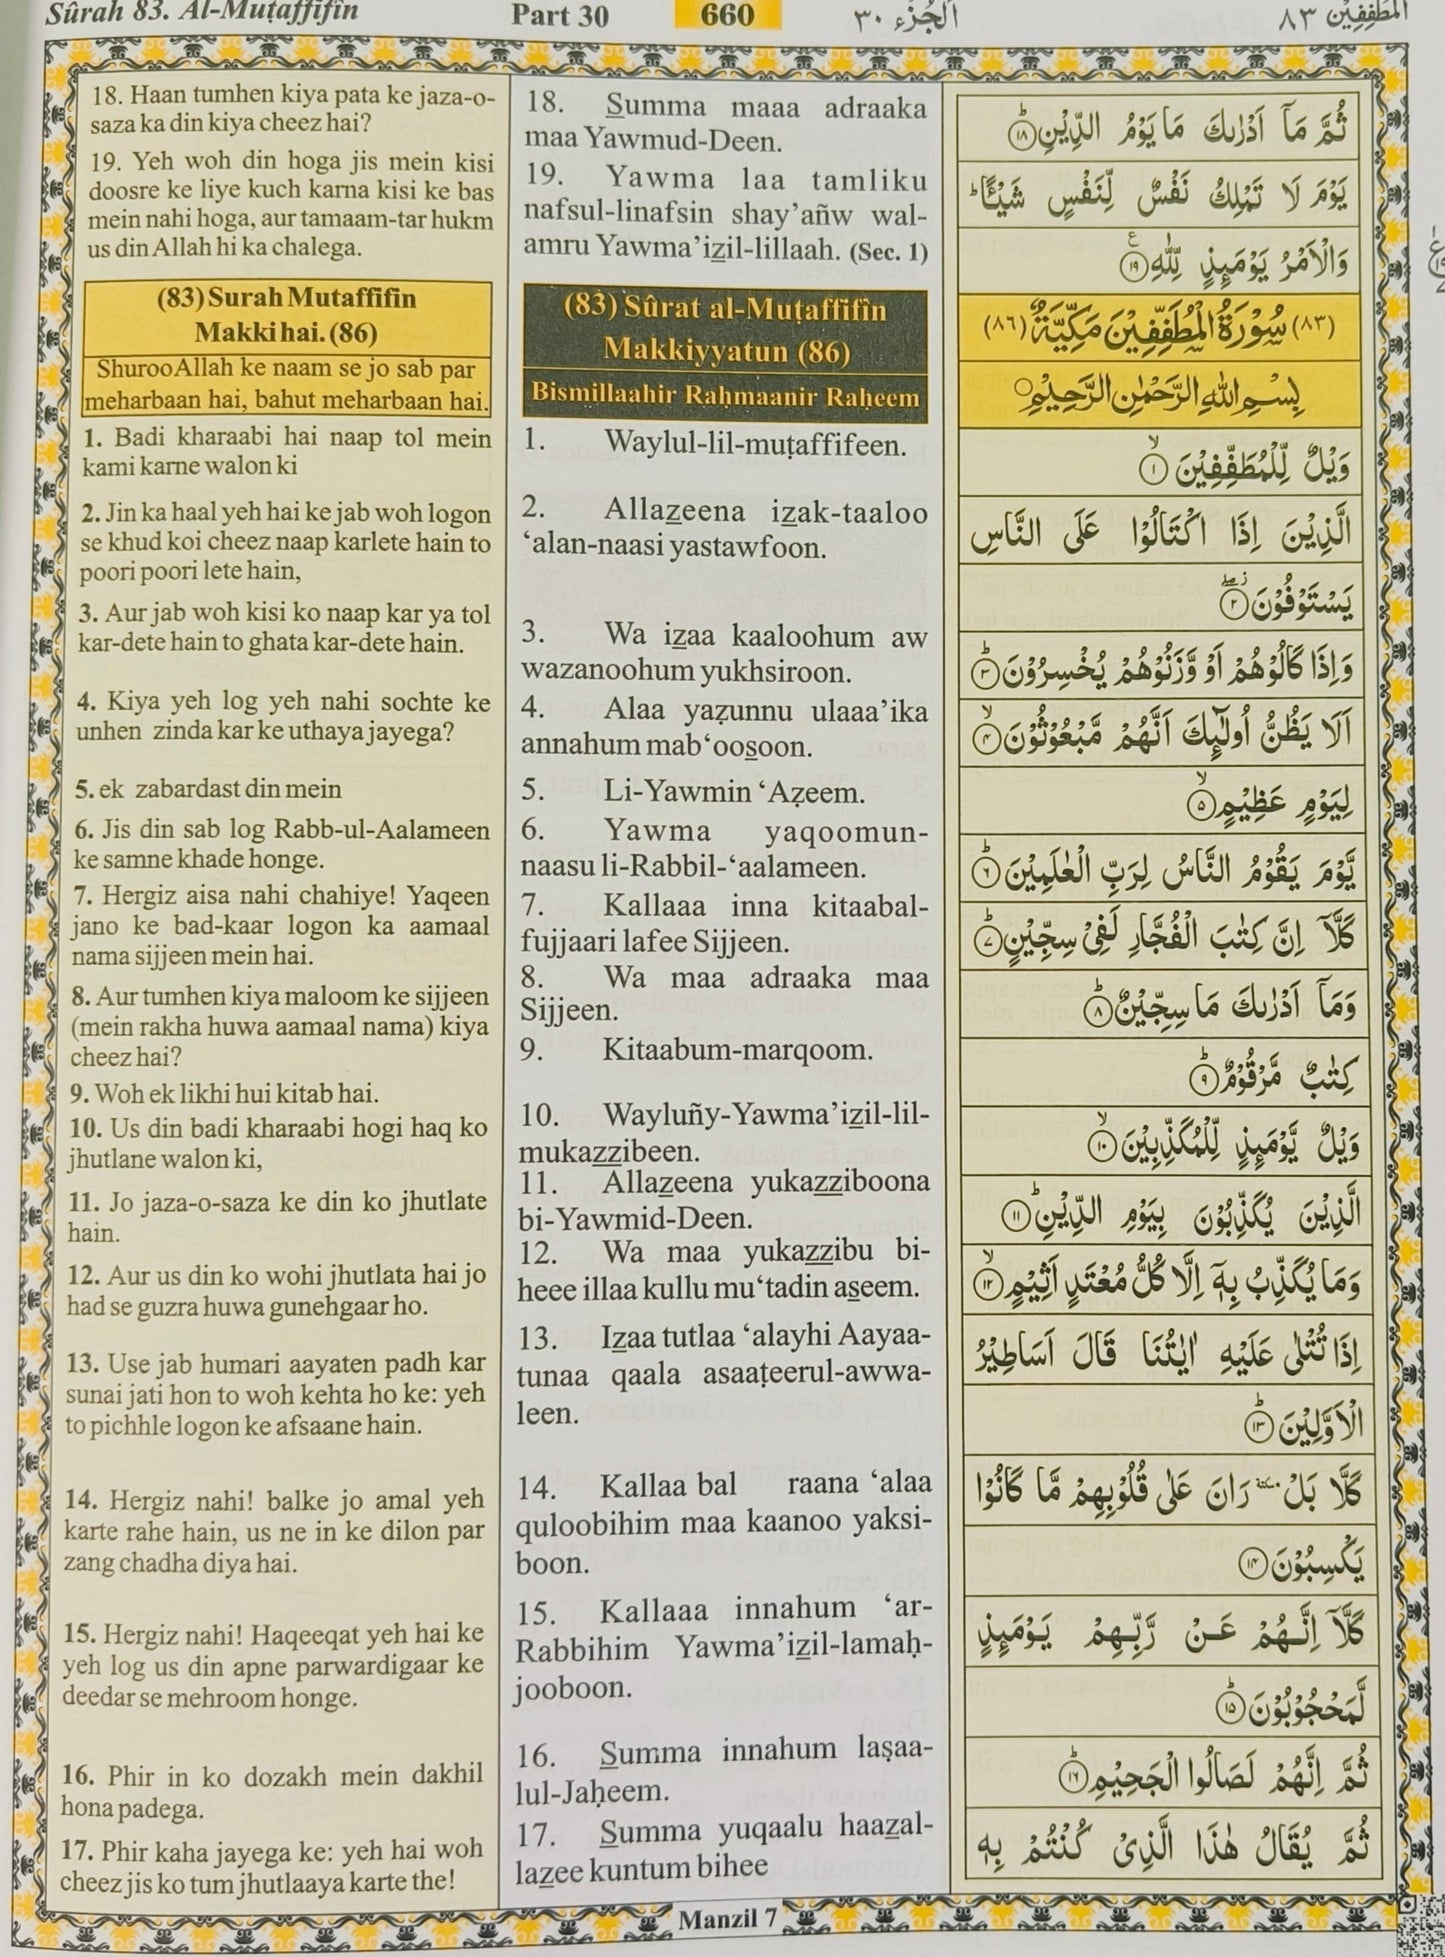 Sûrah 83. Al-Muṭaffifîn
Part 30
660
الْجُزْء ٣٠
الْمُطَفِّفِيْن ٨٣
18. Haan tumhen kiya pata ke jaza-o-
saza ka din kiya cheez hai?
19. Yeh woh din hoga jis mein kisi
doosre ke liye kuch karna kisi ke bas
mein nahi hoga, aur tamaam-tar hukm
us din Allah hi ka chalega.
(83) Surah Mutaffifin
Makki hai. (86)
Shuroo Allah ke naam se jo sab par
meharbaan hai, bahut meharbaan hai.
1. Badi kharaabi hai naap tol mein
kami karne walon ki
2. Jin ka haal yeh hai ke jab woh logon
se khud koi cheez naap karlete hain to
poori poori lete hain,
3. Aur jab woh kisi ko naap kar ya tol
kar-dete hain to ghata kar-dete hain.
4. Kiya yeh log yeh nahi sochte ke
unhen zinda kar ke uthaya jayega?
5. ek zabardast din mein
6. Jis din sab log Rabb-ul-Aalameen
ke samne khade honge.
7. Hergiz aisa nahi chahiye! Yaqeen
jano ke bad-kaar logon ka aamaal
nama sijjeen mein hai.
8. Aur tumhen kiya maloom ke sijjeen
(mein rakha huwa aamaal nama) kiya
cheez hai?
9. Woh ek likhi hui kitab hai.
10. Us din badi kharaabi hogi haq ko
jhutlane walon ki,
11. Jo jaza-o-saza ke din ko jhutlate
hain.
12. Aur us din ko wohi jhutlata hai jo
had se guzra huwa gunehgaar ho.
13. Use jab humari aayaten padh kar
sunai jati hon to woh kehta ho ke: yeh
to pichhle logon ke afsaane hain.
14. Hergiz nahi! balke jo amal yeh
karte rahe hain, us ne in ke dilon par
zang chadha diya hai.
15. Hergiz nahi! Haqeeqat yeh hai ke
yeh log us din apne parwardigaar ke
deedar se mehroom honge.
16. Phir in ko dozakh mein dakhil
hona padega.
17. Phir kaha jayega ke: yeh hai woh
cheez jis ko tum jhutlaaya karte the!
18. Summa maaa adraaka
maa Yawmud-Deen.
19. Yawma laa tamliku
nafsul-linafsin shay’añw wal-
amru Yawma’izil-lillaah. (Sec. 1)
(83) Sûrat al-Muṭaffifîn
Makkiyyatun (86)
Bismillaahir Raḥmaanir Raḥeem
1. Waylul-lil-muṭaffifeen.
2. Allazeena izak-taaloo
‘alan-naasi yastawfoon.
3. Wa izaa kaaloohum aw
wazanoohum yukhsiroon.
4. Alaa yaẓunnu ulaaa’ika
annahum mab‘oosoon.
5. Li-Yawmin ‘Aẓeem.
6. Yawma yaqoomun-
naasu li-Rabbil-‘aalameen.
7. Kallaaa inna kitaabal-
fujjaari lafee Sijjeen.
8. Wa maa adraaka maa
Sijjeen.
9. Kitaabum-marqoom.
10. Wayluñy-Yawma’izil-lil-
mukazzibeen.
11. Allazeena yukazziboona
bi-Yawmid-Deen.
12. Wa maa yukazzibu bi-
heee illaa kullu mu‘tadin aseem.
13. Izaa tutlaa ‘alayhi Aayaa-
tunaa qaala asaaṭeerul-awwa-
leen.
14. Kallaa bal raana ‘alaa
quloobihim maa kaanoo yaksi-
boon.
15. Kallaaa innahum ‘ar-
Rabbihim Yawma’izil-lamaḥ-
jooboon.
16. Summa innahum laṣaa-
lul-Jaḥeem.
17. Summa yuqaalu haazal-
lazee kuntum bihee
ثُمَّ مَآ اَدْرٰىكَ مَا يَوْمُ الدِّيْنِؕ ١٨
يَوْمَ لَا تَمْلِكُ نَفْسٌ لِّنَفْسٍ شَيْـًٔاؕ
وَالْاَمْرُ يَوْمَىِٕذٍ لِّلّٰهِ ١٩ ع
(٨٣) سُوْرَةُ الْمُطَفِّفِيْنَ مَكِّيَّةٌ (٨٦)
بِسْمِ اللّٰهِ الرَّحْمٰنِ الرَّحِيْمِ
وَيْلٌ لِّلْمُطَفِّفِيْنَۙ ١
الَّذِيْنَ اِذَا اكْتَالُوْا عَلَى النَّاسِ
يَسْتَوْفُوْنَ ٢
وَاِذَا كَالُوْهُمْ اَوْ وَّزَنُوْهُمْ يُخْسِرُوْنَؕ ٣
اَلَا يَظُنُّ اُولٰٓىِٕكَ اَنَّهُمْ مَّبْعُوْثُوْنَۙ ٤
لِيَوْمٍ عَظِيْمٍۙ ٥
يَّوْمَ يَقُوْمُ النَّاسُ لِرَبِّ الْعٰلَمِيْنَؕ ٦
كَلَّآ اِنَّ كِتٰبَ الْفُجَّارِ لَفِيْ سِجِّيْنٍؕ ٧
وَمَآ اَدْرٰىكَ مَا سِجِّيْنٌؕ ٨
كِتٰبٌ مَّرْقُوْمٌؕ ٩
وَيْلٌ يَّوْمَىِٕذٍ لِّلْمُكَذِّبِيْنَۙ ١٠
الَّذِيْنَ يُكَذِّبُوْنَ بِيَوْمِ الدِّيْنِؕ ١١
وَمَا يُكَذِّبُ بِهٖٓ اِلَّا كُلُّ مُعْتَدٍ اَثِيْمٍۙ ١٢
اِذَا تُتْلٰى عَلَيْهِ اٰيٰتُنَا قَالَ اَسَاطِيْرُ
الْاَوَّلِيْنَؕ ١٣
كَلَّا بَلْ سكتة رَانَ عَلٰى قُلُوْبِهِمْ مَّا كَانُوْا
يَكْسِبُوْنَ ١٤
كَلَّآ اِنَّهُمْ عَنْ رَّبِّهِمْ يَوْمَىِٕذٍ
لَّمَحْجُوْبُوْنَؕ ١٥
ثُمَّ اِنَّهُمْ لَصَالُوا الْجَحِيْمِؕ ١٦
ثُمَّ يُقَالُ هٰذَا الَّذِيْ كُنْتُمْ بِهٖ
Manzil 7